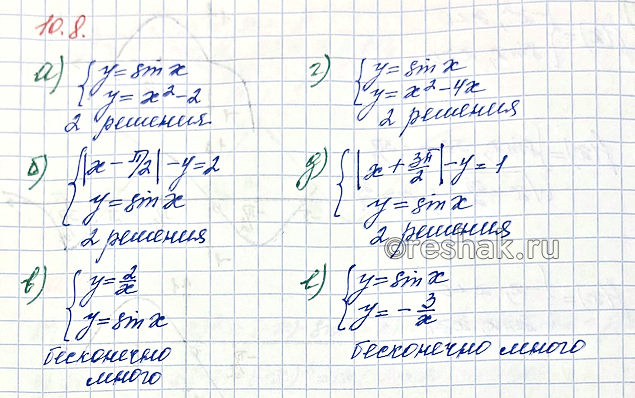 10.8.
а) { y = sin x
y = x² - 2
2 решения
б) { |x - π/2| - y = 2
y = sin x
2 решения
в) { y = 2/x
y = sin x
бесконечно
много
г) { y = sin x
y = x² - 4x
2 решения
д) { |x + 3π/2| - y = 1
y = sin x
2 решения
е) { y = sin x
y = - 3/x
бесконечно много
©reshak.ru